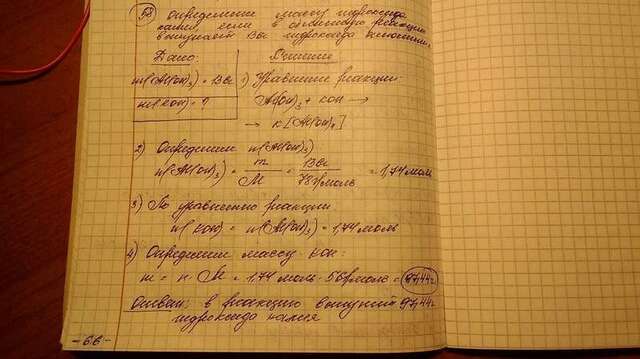 58) Определите массу гидроксида
калия, если в обменную реакцию
вступает 136г гидроксида алюминия.
Дано: Решение
m(Al(OH)3) = 136г 1) Уравнение реакции:
m(KOH) = ? Al(OH)3 + KOH →
→ K[Al(OH)4]
2) Определим n(Al(OH)3)
n(Al(OH)3) = m/M = 136г/78г/моль = 1,74 моль
3) По уравнению реакции
n(KOH) = n(Al(OH)3) = 1,74 моль
4) Определим массу KOH:
m = n · M = 1,74 моль · 56г/моль = 97,44г
Ответ: в реакцию вступит 97,44г
гидроксида калия
-66-